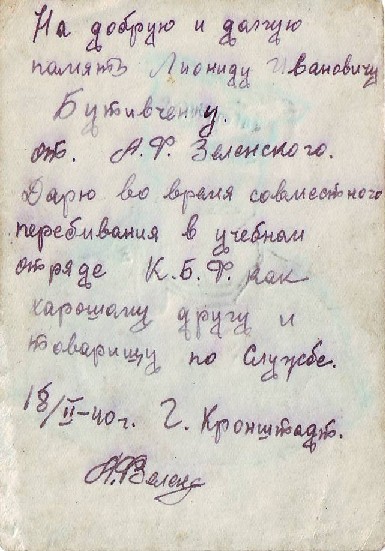 На добрую и долгую
память Лиониду Ивановичу
Бутивченку.
от. А.Ф. Зеленского.
Дарю во время совместного
перебивания в учебном
отряде К.Б.Ф. как
харошаму другу и
товарищу по Службе.
18/II-40 г. Г. Кронштадт.
А.Ф.Зелен